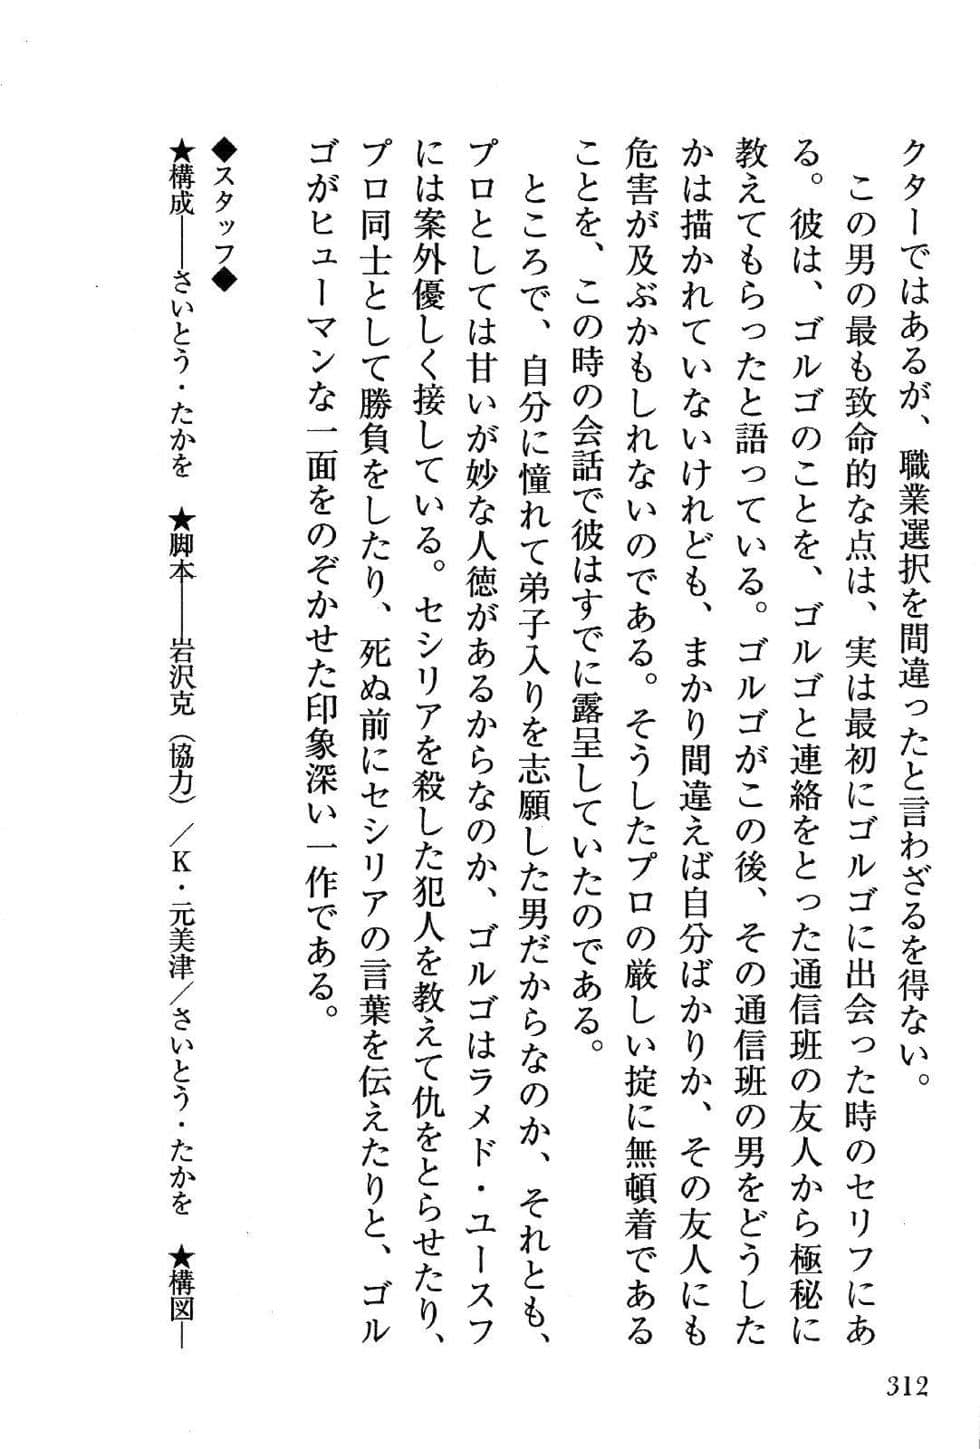 クターではあるが、職業選択を間違ったと言わざるを得ない。
この男の最も致命的な点は、実は最初にゴルゴに出会った時のセリフにあ
る。彼は、ゴルゴのことを、ゴルゴと連絡をとった通信班の友人から極秘に
教えてもらったと語っている。ゴルゴがこの後、その通信班の男をどうした
かは描かれていないけれども、まかり間違えば自分ばかりか、その友人にも
危害が及ぶかもしれないのである。そうしたプロの厳しい掟に無頓着である
ことを、この時の会話で彼はすでに露呈していたのである。
ところで、自分に憧れて弟子入りを志願した男だからなのか、それとも、
プロとしては甘いが妙な人徳があるからなのか、ゴルゴはラメド・ユースフ
には案外優しく接している。セシリアを殺した犯人を教えて仇をとらせたり、
プロ同士として勝負をしたり、死ぬ前にセシリアの言葉を伝えたりと、ゴル
ゴがヒューマンな一面をのぞかせた印象深い一作である。
◆スタッフ◆
★構成――さいとう・たかを　★脚本――岩沢克（協力）／K・元美津／さいとう・たかを　★構図―
312